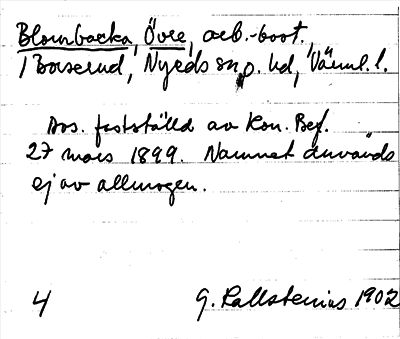 Blombacka, Övre, arb.-bost.
/ Boserud, Nyeds sn, p. hd, Värml. l.
Avs. fastställd av Kon. Bef.
27 mars 1899. Namnet används
ej av allmogen.
4 G. Kallstenius 1902